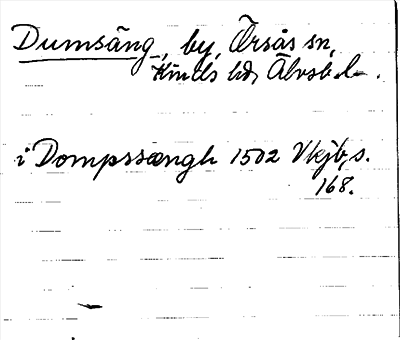 Dumsäng, by, Örsås sn,
Kinds hd, Älvsb. l.
i Dompssængh 1502 Vkjb, s.
168.